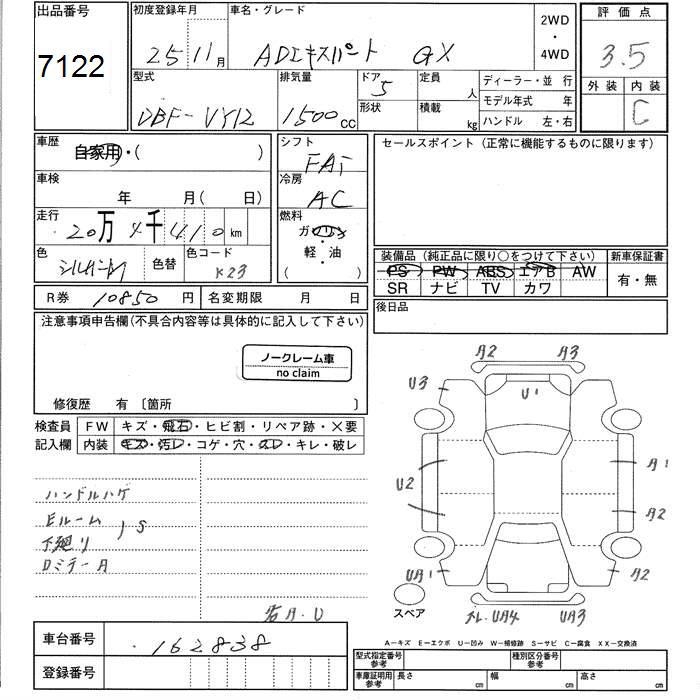 出品番号
7122
初度登録年月
25 11月
車名・グレード
ADエキスパート GX
2WD
・
4WD
評価点
3.5
外装 内装
C
型式
DBF-VY12
排気量
1500CC
ドア
5
形状
定員
人
積載
kg
ディーラー・並行
モデル年式 年
ハンドル 左・右
車歴
自家用・( )
車検
年 月( 日)
走行
20万4千410km
色
シルバーM
色替
色コード
K23
シフト
FAT
冷房
AC
燃料
ガソリン
・
軽・油
( )
セールスポイント(正常に機能するものに限ります)
装備品(純正品に限り○をつけて下さい)
PS PW ABS エアB AW
SR ナビ TV カワ
新車保証書
有・無
R券 10850円
名変期限 月 日
後日品
注意事項申告欄(不具合内容等は具体的に記入して下さい)
ノークレーム車
no claim
修復歴 有 〔箇所 〕
検査員
記入欄
FW キズ・飛石・ヒビ割・リペア跡・×要
内装 キズ・汚レ・コゲ・穴・スレ・キレ・破レ
ハンドルハゲ
Eルーム
下廻リ
S
A2 A3
U3
U1
U2
A1
A2
UA1
A2
UA4 UA3
スペア
A−キズ E−エクボ U−凹み W−補修跡 S−サビ C−腐食 XX−交換済
車台番号 162838
登録番号
型式指定番号
参考
種別区分番号
参考
車庫証明用
参考
長さ cm 幅 cm 高さ cm